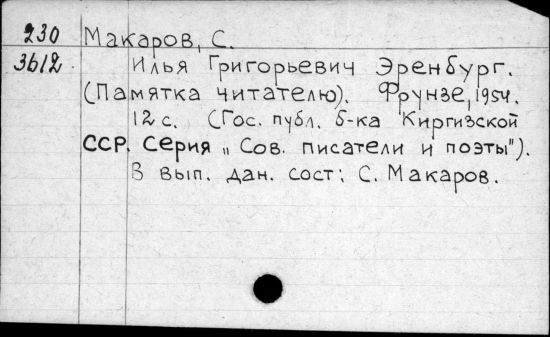 230 Макаров, С.
3612 Илья Григорьевич Эренбург.
(Памятка читателю). Фрунзе, 1954.
12 с. (Гос. публ. б-ка Киргизской
ССР. Серия „Сов. писатели и поэты").
В вып. дан. сост: С. Макаров.